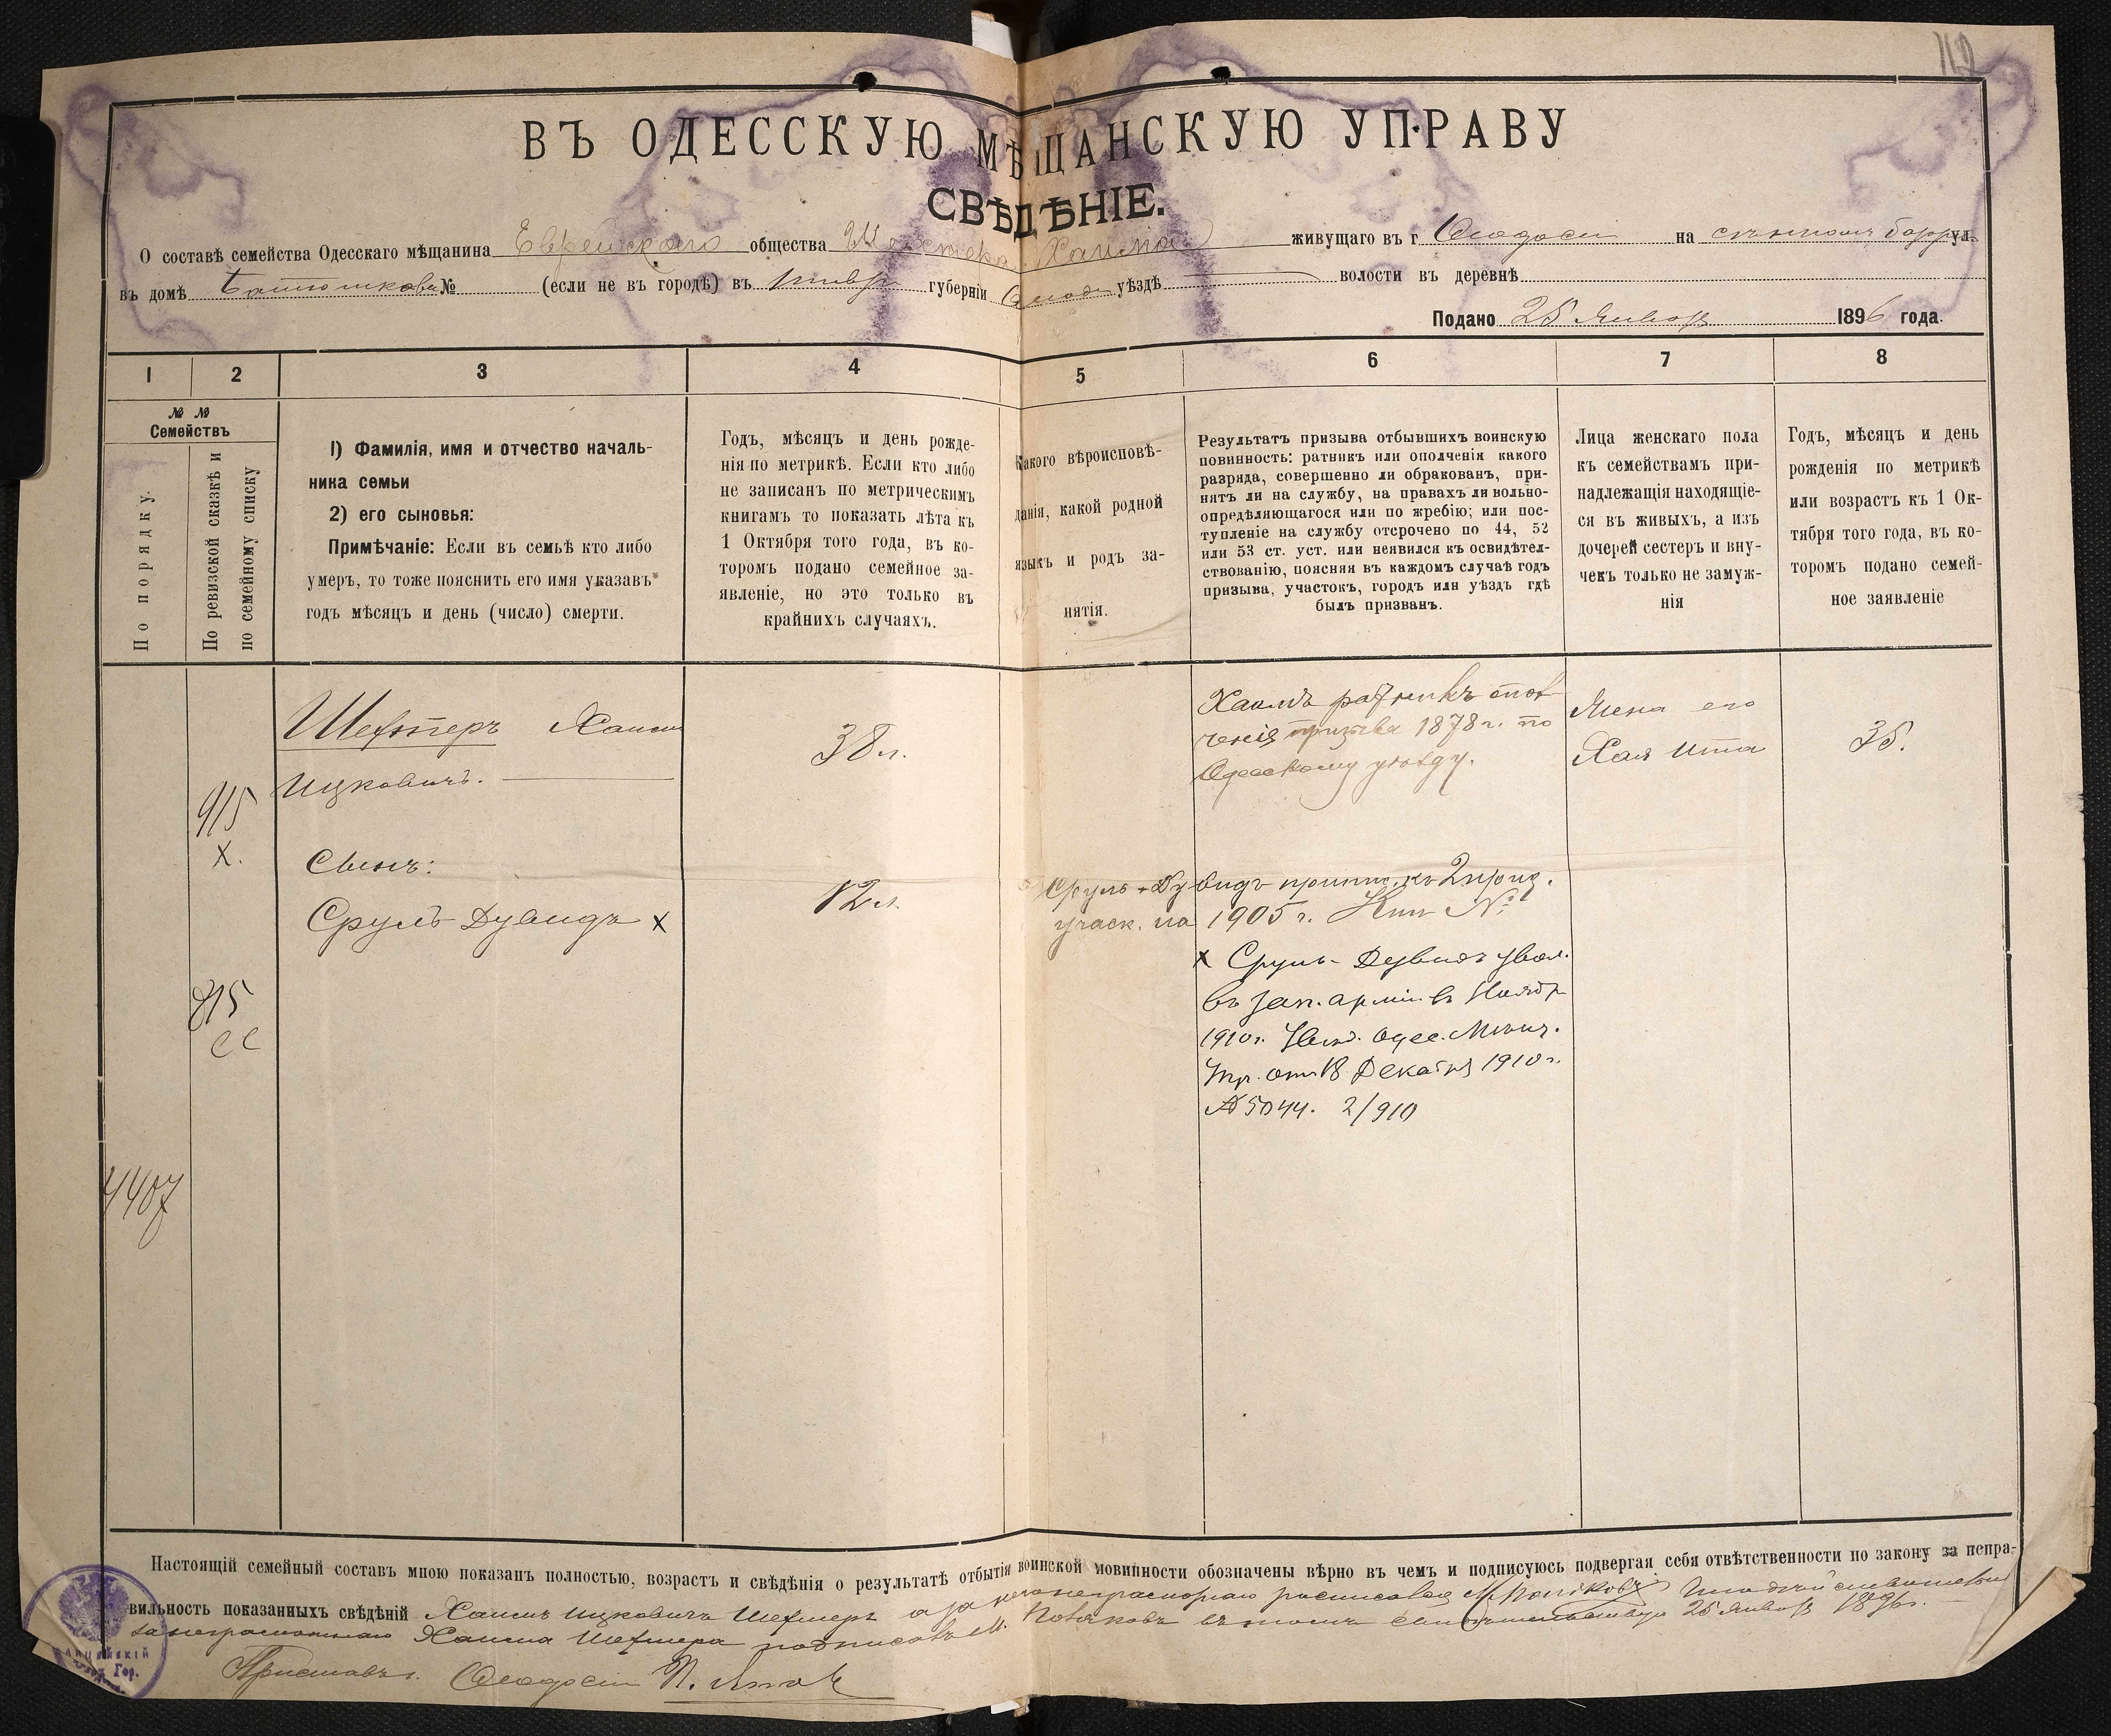 ВЪ ОДЕССКУЮ МѢЩАНСКУЮ УПРАВУ
СВѢДѢНІЕ.
О составѣ семейства Одесскаго мѣщанина Еврейскаго общества Шехтера Хаима живущаго въ г Ѳеодосіи на ул.
въ домѣ № (если не въ городѣ) въ губерніи уѣздѣ волости въ деревнѣ
Подано 25 Января 1896 года.
1 2 3 4 5 6 7 8
№ № Семействъ
По порядку.
По ревизской сказкѣ и по семейному списку
1) Фамилія, имя и отчество началь-
ника семьи
2) его сыновья:
Примѣчаніе: Если въ семьѣ кто либо
умеръ, то тоже пояснить его имя указавъ
годъ мѣсяцъ и день (число) смерти.
Годъ, мѣсяцъ и день рожде-
нія по метрикѣ. Если кто либо
не записанъ по метрическимъ
книгамъ то показать лѣта къ
1 Октября того года, въ ко-
торомъ подано семейное за-
явленіе, но это только въ
крайнихъ случаяхъ.
Какого вѣроисповѣ-
данія, какой родной
языкъ и родъ за-
нятія.
Результатъ призыва отбывшихъ воинскую
повинность: ратникъ или ополченія какого
разряда, совершенно ли обракованъ, при-
нятъ ли на службу, на правахъ ли вольно-
опредѣляющагося или по жребію; или пос-
тупленіе на службу отсрочено по 44, 52
или 53 ст. уст. или неявился къ освидѣтел-
ствованію, поясняя въ каждомъ случаѣ годъ
призыва, участокъ, городъ или уѣздъ гдѣ
былъ призванъ.
Лица женскаго пола
къ семействамъ при-
надлежащія находящіе-
ся въ живыхъ, а изъ
дочерей сестеръ и вну-
чекъ только не замуж-
нія
Годъ, мѣсяцъ и день
рожденія по метрикѣ
или возрастъ къ 1 Ок-
тября того года, въ ко-
торомъ подано семей-
ное заявленіе
Шехтеръ Хаимъ
Ицковичъ.
38 л.
Хаимъ ратникъ опол
ченія призыва 1878 г. по
Одесскому уѣзду.
Жена его
Хая Ита
35.
915
х.
Сынъ:
Сруль-Дувидъ х
12 л
Сруль-Дувидъ припис. къ 2 приз.
участ. на 1905 г. №
х Сруль-Дувидъ увол.
въ зап. арміи въ Ноябр
1910 г. Увѣд. Одес. Мѣщ.
Упр. отъ 18 Декабря 1910 г.
№ 5044. 2/910
815
ее
4407
Настоящій семейный составъ мною показанъ полностью, возрастъ и свѣдѣнія о результатѣ отбытія воинской мовинности обозначены вѣрно въ чемъ и подписуюсь подвергая себя отвѣтственности по закону за непра-
вильность показанныхъ свѣдѣній Хаимъ Ицковичъ Шехтеръ а за него неграмотнаго росписался
за неграмотнаго Хаима Шехтера подписалъ М. въ томъ свидѣтельствую 25 Января 1896 г.
Приставъ г. Ѳеодосіи